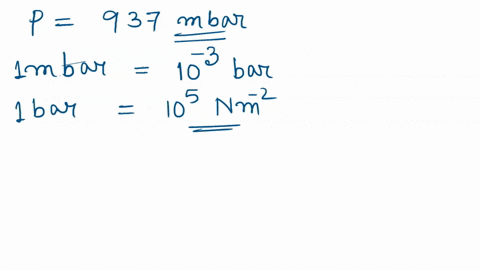 P = 937 mbar
1mbar = 10⁻³ bar
1bar = 10⁵ Nm⁻²